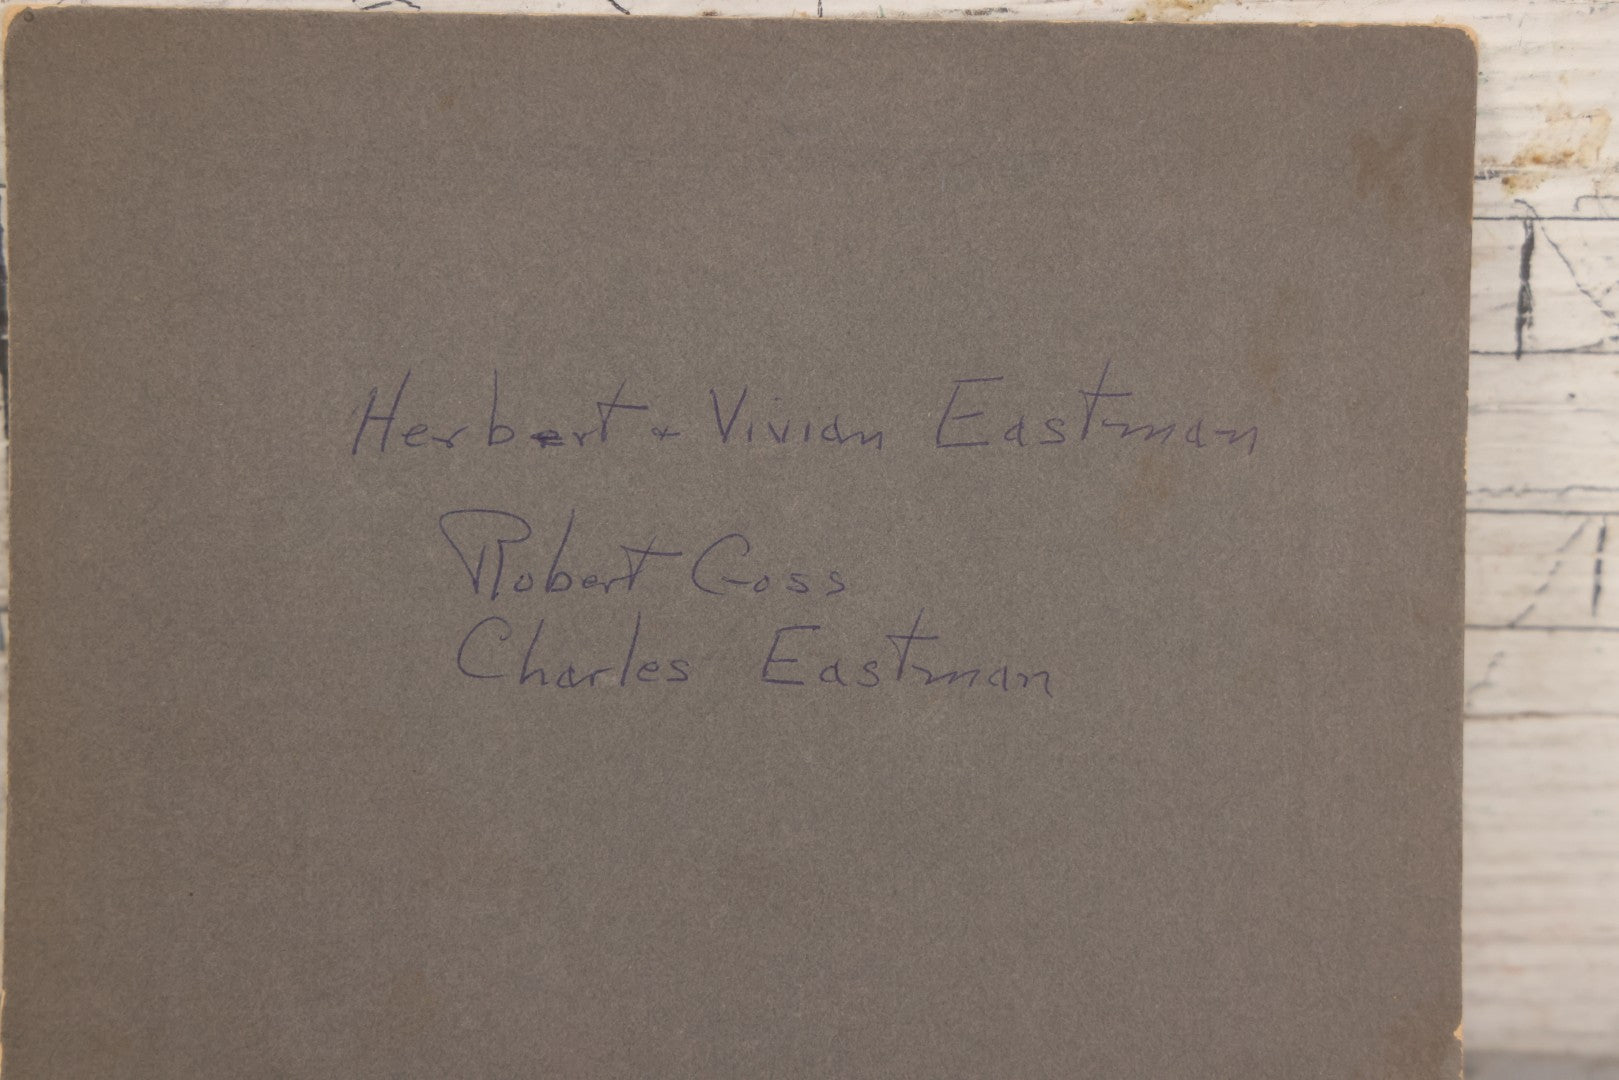 Herbert + Vivian Eastman
Robert Goss
Charles Eastman